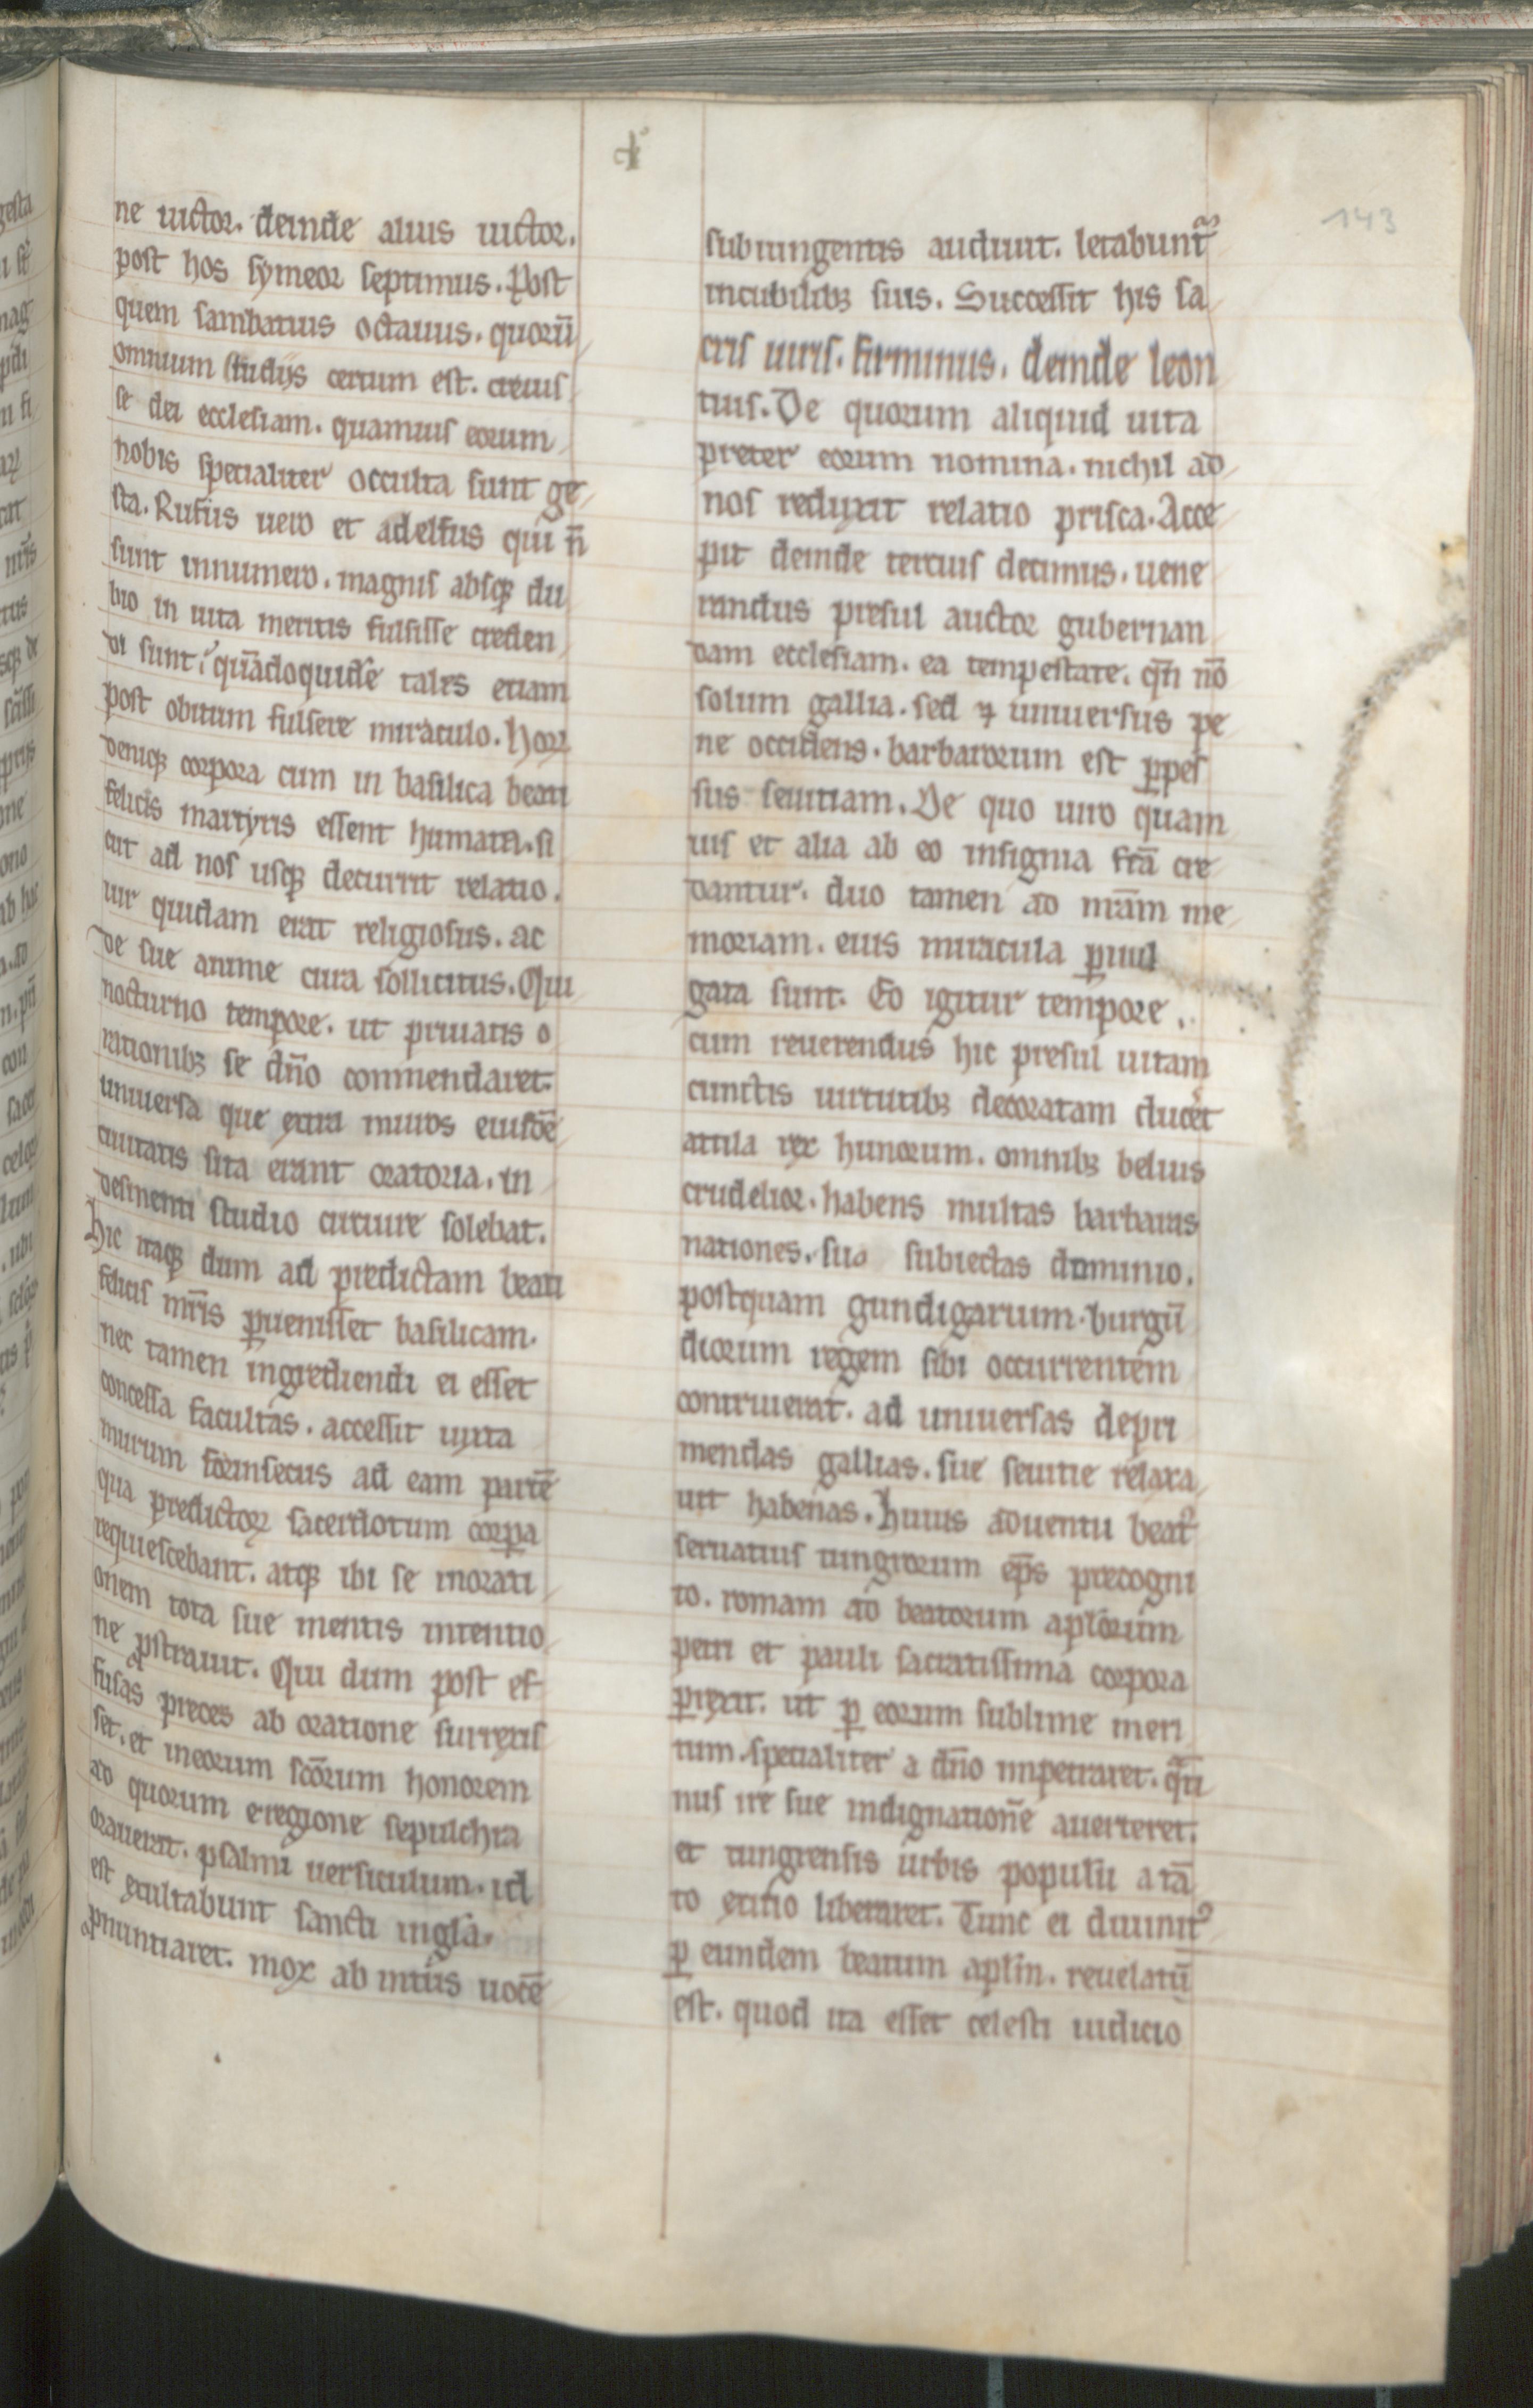 ne uictor. deinde alius uictor.
post hos symeor septimus. Post
quem sambatius octauus. quorū
omnium studijs certum est. creuis
se dei ecclesiam. quamuis eorum
nobis specialiter occulta sunt ge
sta. Rufus uero et adelfus qui ī
sunt innumero. magnis absqꝫ du
bio in uita meritis fulsisse creden
di sunt. quādoquidē tales etiam
post obitum fulsere miraculo. Horꝝ
deniqꝫ corpora cum in basilica beati
felicis martyris essent humata. si
cut ad nos usqꝫ decurrit relatio.
uir quidam erat religiosus. ac
de sue anime cura sollicitus. Qui
nocturno tempore. ut priuatis o
rationibꝫ se dn̄o commendaret.
uniuersa que extra muros eiusdē
ciuitatis sita erant oratoria. in
desinenti studio circuire solebat.
Hic itaqꝫ dum ad predictam beati
felicis mr̄is ꝑuenisset basilicam.
nec tamen ingrediendi ei esset
concessa facultas. accessit iuxta
murum forinsecus ad eam partē
qua predictorꝝ sacerdotum corꝑa
requiescebant. atqꝫ ibi se in orati
onem tota sue mentis intentio
ne ꝓstrauit. Qui dum post ef
fusas preces ab oratione surrexis
set. et in eorum sc̄orum honorem
ad quorum e regione sepulchra
orauerat. psalmi uersiculum. id
est exultabunt sancti in gl̄a.
ꝓnuntiaret. mox ab intus uocē
143
subiungentis audiuit. letabunt᷑
in cubilibꝫ suis. Successit his sa
cris uiris. firminus. deinde leon
tius. De quorum aliquid uita
preter eorum nomina. nichil ad
nos reduxit relatio prisca. Acce
pit deinde tercius decimus. uene
randus presul auctor gubernan
dam ecclesiam. ea tempestate. qn̄ nō
solum gallia. sed ⁊ uniuersus pe
ne occidens. barbarorum est ꝑpes
sus seuitiam. De quo uiro quam
uis et alia ab eo insignia fc̄a cre
dantur. duo tamen ad nr̄am me
moriam. eius miracula ꝑuul
gata sunt. Eo igitur tempore.
cum reuerendus hic presul uitam
cunctis uirtutibꝫ decoratam ducer&
attila rex hunorum. omnibꝫ beluis
crudelior. habens multas barbaras
nationes. suo subiectas dominio.
postquam gundigarium. burgū
diorum regem sibi occurrentem
contriuerat. ad uniuersas depri
mendas gallias. sue seuitie relaxa
uit habenas. Huius aduentu beatꝰ
seruatius tungrorum ep̄s precogni
to. romam ad beatorum apl̄orum
petri et pauli sacratissima corpora
ꝑrexit. ut ꝑ eorum sublime meri
tum. specialiter a dn̄o impetraret. q̄ti
nus ire sue indignationē auerteret.
et tungrensis urbis populū a tā
to exitio liberaret. Tunc ei diuinitꝰ
ꝑ eundem beatum apl̄m. reuelatū
est. quod ita esset celesti iudicio